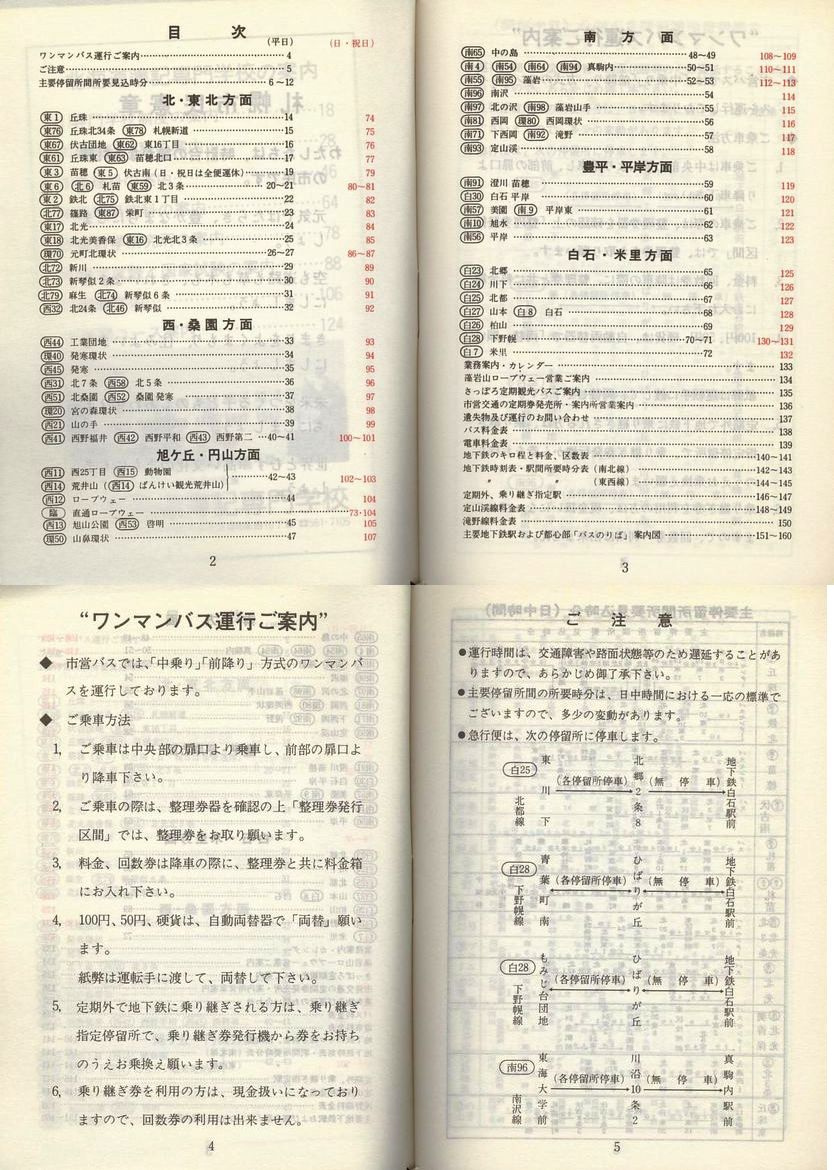 目次
(平日) (日・祝日)
ワンマンバス運行ご案内 4
ご注意 5
主要停留所間所要見込時分 6〜12
北・東北方面
東1 丘珠 14 74
東76 丘珠北34条 東78 札幌新道 15 75
東67 伏古団地 東62 東16丁目 16 76
東61 丘珠東 東63 苗穂北口 17 77
東3 苗穂 東5 伏古南(日・祝日は全便運休) 19 79
東6 北6 札苗 東59 北3条 20〜21 80〜81
東2 鉄北 北75 鉄北東1丁目 22 82
北77 篠路 東87 栄町 23 83
東17 北光 24 84
東18 北光美香保 東16 北光北3条 25 85
環70 元町北環状 26〜27 86〜87
北72 新川 29 89
北73 新琴似2条 30 90
北79 麻生 北74 新琴似6条 31 91
西32 北24条 北46 新琴似 32 92
西・桑園方面
西44 工業団地 33 93
環40 発寒環状 34 94
西45 発寒 35 95
西31 北7条 西58 北5条 36 96
西51 北桑園 西52 桑園発寒 37 97
環20 宮の森環状 38 98
西21 山の手 39 99
西41 西野福井 西42 西野平和 西43 西野第二 40〜41 100〜101
旭ケ丘・円山方面
西11 西25丁目 西15 動物園
西14 荒井山(西14 ばんけい観光荒井山) 42〜43 102〜103
西12 ロープウェー 44 104
臨 直通ロープウェー 73・104
西13 旭山公園 西53 啓明 45 105
環50 山鼻環状 47 107
2
南方面
南65 中の島 48〜49 108〜109
南4 南54 南64 南94 真駒内 50〜51 110〜111
南55 南95 藻岩 52〜53 112〜113
南96 南沢 54 114
南97 北の沢 南98 藻岩山手 55 115
南81 西岡 環80 西岡環状 56 116
南71 下西岡 南92 滝野 57 117
南93 定山渓 58 118
豊平・平岸方面
南91 澄川 苗穂 59 119
白30 白石 平岸 60 120
南57 美園 南9 平岸東 61 121
南10 旭水 62 122
南56 平岸 63 123
白石・米里方面
白23 北郷 65 125
白24 川下 66 126
白25 北都 67 127
白27 山本 白8 白石 68 128
白26 柏山 69 129
白28 下野幌 70〜71 130〜131
白7 米里 72 132
業務案内・カレンダー 133
藻岩山ロープウェー営業ご案内 134
さっぽろ定期観光バスご案内 135
市営交通の定期券発売所・案内所営業案内 136
遺失物及び運行のお問い合わせ 137
バス料金表 138
電車料金表 139
地下鉄のキロ程と料金、区数表 140〜141
地下鉄時刻表・駅間所要時分表(南北線) 142〜143
〃 〃 (東西線) 144〜145
定期外、乗り継ぎ指定駅 146〜147
定山渓線料金表 148〜149
滝野線料金表 150
主要地下鉄駅および都心部「バスのりば」案内図 151〜160
3
“ワンマンバス運行ご案内”
◆ 市営バスでは、「中乗り」「前降り」方式のワンマンバ
スを運行しております。
◆ ご乗車方法
1, ご乗車は中央部の扉口より乗車し、前部の扉口よ
り降車下さい。
2, ご乗車の際は、整理券器を確認の上「整理券発行
区間」では、整理券をお取り願います。
3, 料金、回数券は降車の際に、整理券と共に料金箱
にお入れ下さい。
4, 100円、50円、硬貨は、自動両替器で「両替」願い
ます。
紙弊は運転手に渡して、両替して下さい。
5, 定期外で地下鉄に乗り継ぎされる方は、乗り継ぎ
指定停留所で、乗り継ぎ券発行機から券をお持ち
のうえお乗換え願います。
6, 乗り継ぎ券を利用の方は、現金扱いになっており
ますので、回数券の利用は出来ません。
4
ご注意
●運行時間は、交通障害や路面状態等のため遅延することがあ
りますので、あらかじめ御了承下さい。
●主要停留所間の所要時分は、日中時間における一応の標準で
ございますので、多少の変動があります。
●急行便は、次の停留所に停車します。
白25 北都線 東川下 (各停留所停車) 北郷2条8 (無停車) 地下鉄白石駅前
白28 下野幌線 青葉町南 (各停留所停車) ひばりが丘 (無停車) 地下鉄白石駅前
白28 下野幌線 もみじ台団地 (各停留所停車) ひばりが丘 (無停車) 地下鉄白石駅前
南96 南沢線 東海大学前 (各停留所停車) 川沿10条2 (無停車) 真駒内駅前
5